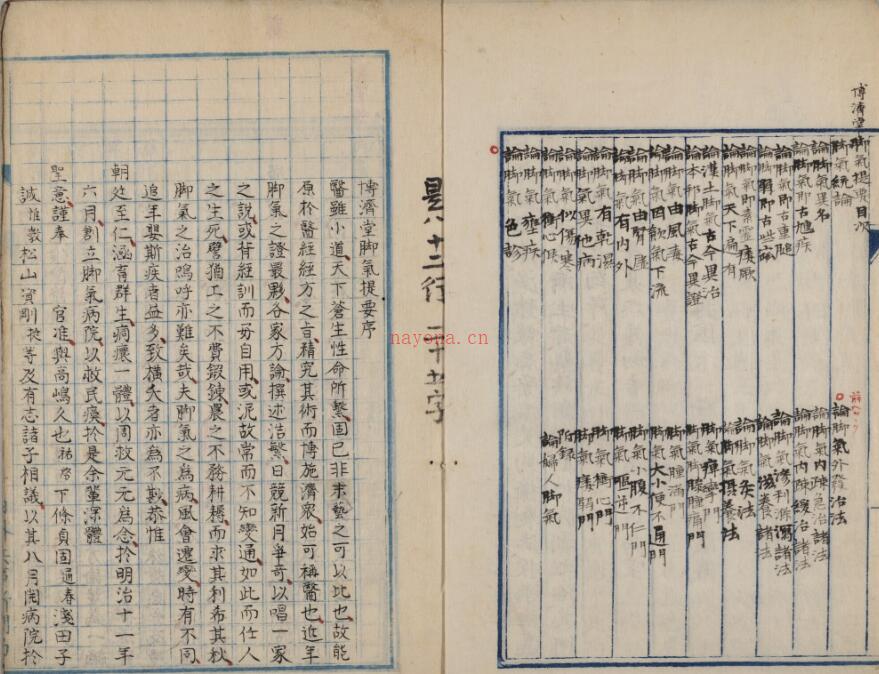 博濟堂脚氣提要目次
脚氣統論
論脚氣異名
論脚氣即古尰疾
論脚氣即古重膇
論脚弱即古
論脚氣即素靈痿厥
論脚氣天下徧有
論漢土脚氣古今異治
論本邦脚氣古今異證
論脚氣四氣下流
論脚氣由風毒
論脚氣由腎虛
論脚氣有内外
論脚氣有乾濕
論脚氣異他病
論脚氣似傷寒
論脚氣衝心候
論脚氣壅疾
論脚氣色診
論脚氣外發治法
論脚氣内陳急治諸法
論脚氣内陳緩治諸法
論脚氣滲利諸法
論脚氣滋養諸法
論脚氣灸法
論脚氣摂養法
脚氣痺攣門
脚氣脚膝腫痛門
脚氣腫滿門
脚氣大小便不通門
脚氣小腹不仁門
脚氣嘔逆門
脚氣衝心門
脚氣痿弱門
附錄
論婦人脚氣
博濟堂脚氣提要序
醫雖小道天下蒼生性命所繫固已非末藝之可以比也故能
原於醫經經方之旨精究其術而博施濟衆始可稱醫也近年
脚氣之證最夥各家方論撰述浩繁日競新月爭奇以唱一家
之說或背經訓而毋自用或泥故常而不知變通如此而任人
之生死譬猶工之不費鍛鍊農之不務耕耨而求其利希其秋
脚氣之治嗚呼亦難矣哉夫脚氣之為病風會遷變時有不同
追年嬰斯疾者益多致橫夭者亦為不尠恭惟
朝廷至仁涵育群生痌瘝一體以周救元元為念於明治十一年
六月創立脚氣病院以救民瘼於是余輩深體
聖意謹奉 官准與高嶋久也祐啓下條貞固通春淺田子
誠惟數松山資剛挺等及有志諸子相議以其八月開病院於
nayona.cn